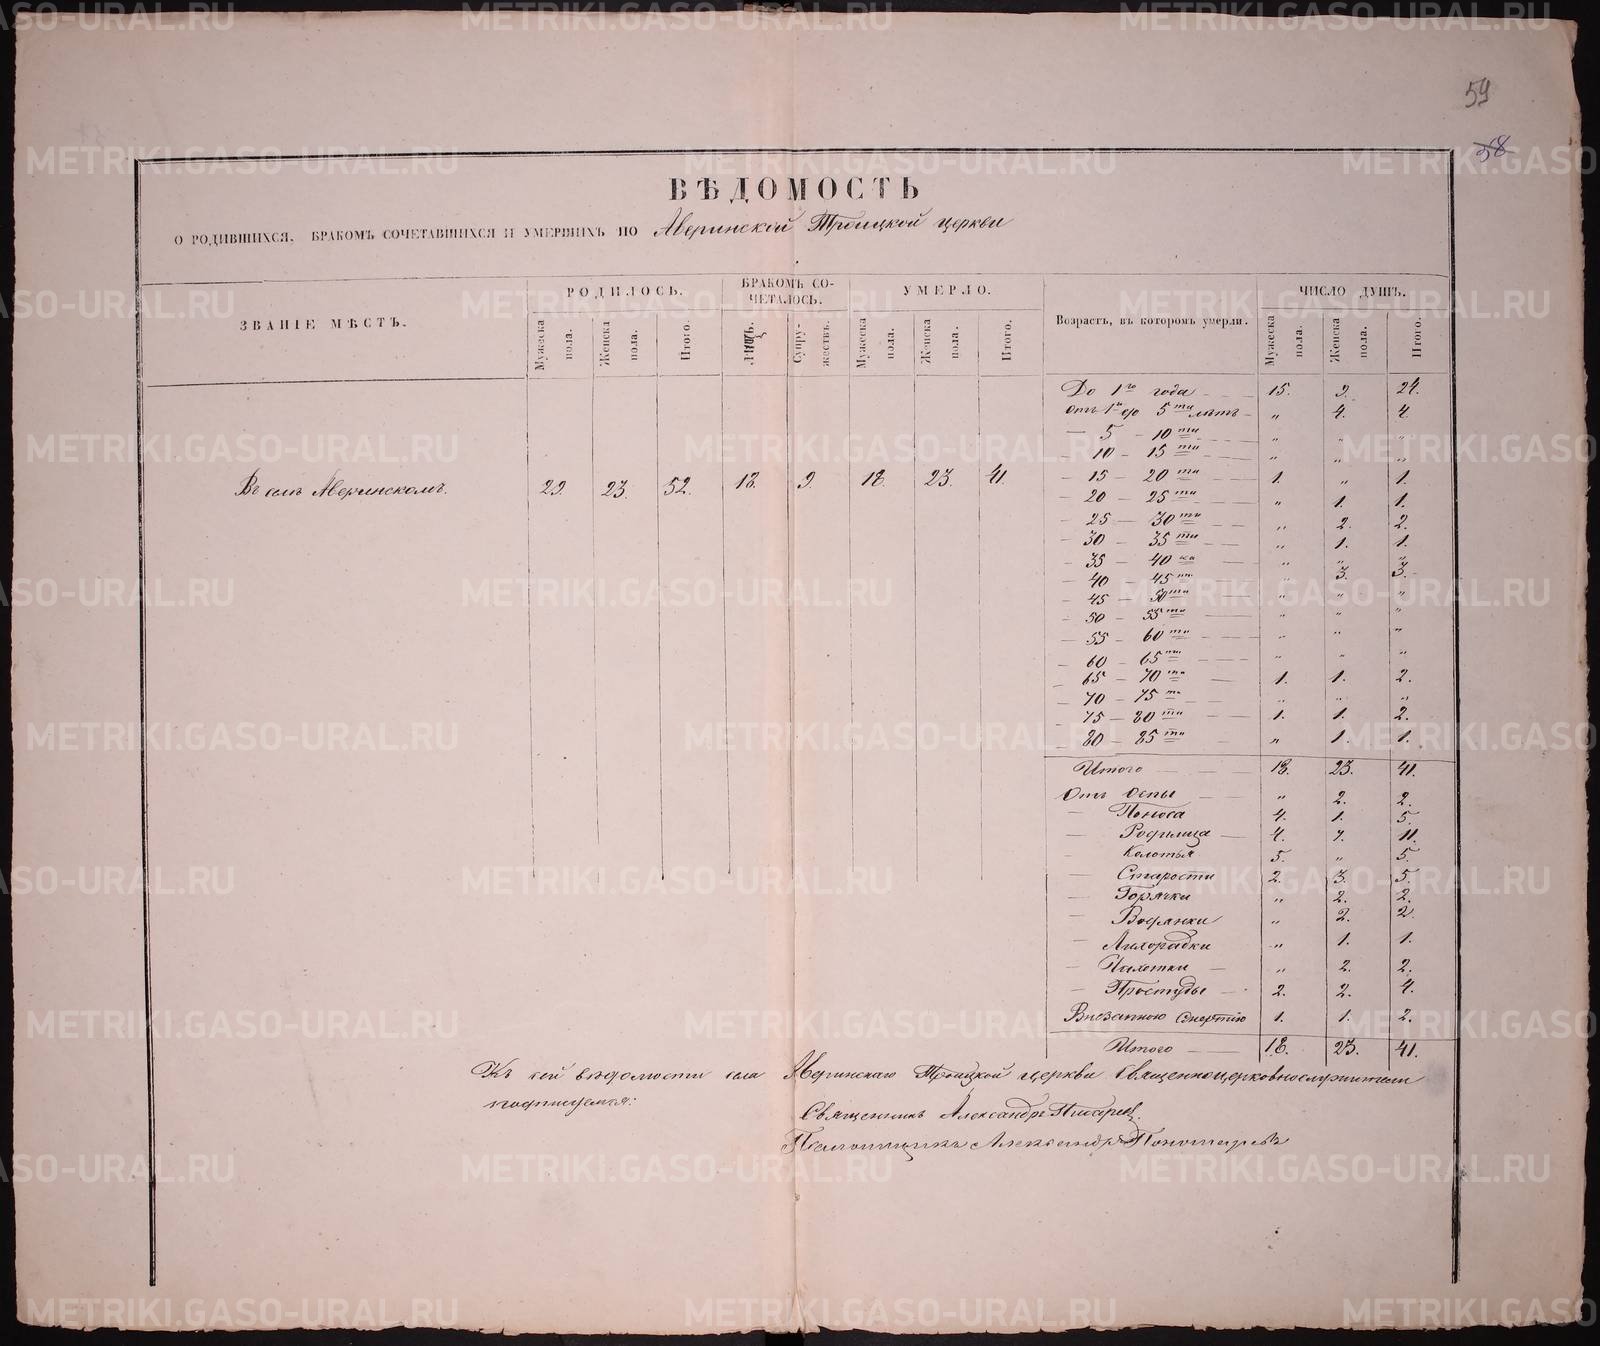 59
58
ВѢДОМОСТЬ
О РОДИВШИХСЯ, БРАКОМЪ СОЧЕТАВШИХСЯ И УМЕРШИХЪ ПО Аверинской Троицкой церкви
ЗВАНІЕ МѢСТЪ.
РОДИЛОСЬ.
БРАКОМЪ СОЧЕТАЛОСЬ.
УМЕРЛО.
Возрастъ, въ которомъ умерли.
ЧИСЛО ДУШЪ.
Мужеска пола. Женска пола. Итого. Супружествъ. Мужеска пола. Женска пола. Итого. Мужеска пола. Женска пола. Итого.
Въ селѣ Аверинскомъ. 29. 23. 52. 18. 9. 18. 23. 41.
До 1го года 15. 9. 24.
отъ 1го до 5ти лѣтъ „ 4. 4.
— 5 — 10ти „ „ „
— 10 — 15ти „ „ „
— 15 — 20ти 1. „ 1.
— 20 — 25ти „ 1. 1.
— 25 — 30ти „ 2. 2.
— 30 — 35ти „ 1. 1.
— 35 — 40ка „ „ „
— 40 — 45ти „ 3. 3.
— 45 — 50ти „ „ „
— 50 — 55ти „ „ „
— 55 — 60ти „ „ „
— 60 — 65ти „ „ „
— 65 — 70ти 1. 1. 2.
— 70 — 75ти „ „ „
— 75 — 80ти 1. 1. 2.
— 80 — 85ти „ 1. 1.
Итого 18. 23. 41.
Отъ Оспы „ 2. 2.
— Поноса 4. 1. 5.
— Родимца 4. 7. 11.
— Колотья 5. „ 5.
— Старости 2. 3. 5.
— Горячки „ 2. 2.
— Водянки „ 2. 2.
— Лихорадки „ 1. 1.
— Чахотки „ 2. 2.
— Простуды 2. 2. 4.
Внезапною смертію 1. 1. 2.
Итого 18. 23. 41.
Къ сей вѣдомости села Аверинскаго Троицкой церкви Священноцерковнослужители
подписуемся:
Священникъ Александръ Писарев
Псаломщикъ Александръ Пономаревъ
METRIKI.GASO-URAL.RU